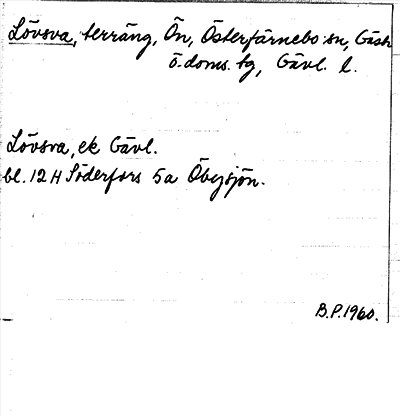 Lövsva, terräng, Ön, Österfärnebo sn, Gästr
ö. doms. tg, Gävl. l.
Lövsva, ek Gävl.
bl. 12 H Söderfors 5a Öbysjön.
B.P. 1960.